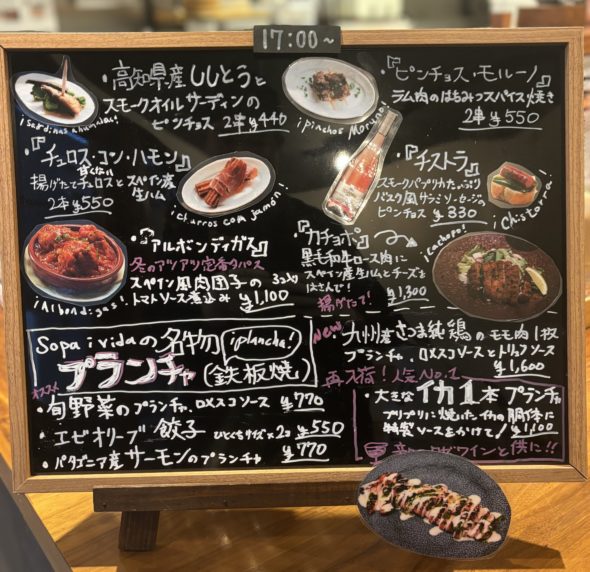 17:00~
・高知県産ししとうと
スモークオイルサーディンの
ピンチョス 2串 ¥440
¡Sardinas ahumadas!
『ピンチョス・モルーノ』
ラム肉のはちみつスパイス焼き
2串 ¥550
¡pinchos Moruno!
・『チュロス・コン・ハモン』
甘くない
揚げたてチュロスと スペイン産
生ハム
2本 ¥550
¡churros con jamón!
・『チストラ』
スモークパプリカたっぷり
バスク風サラミソーセージの
ピンチョス ¥330
¡Chistorra!
・『アルボンディガス』
冬のアツアツ定番タパス
スペイン風肉団子の 3コ入り
トマトソース煮込み ¥1,100
¡Albondigas!
・『カチョポ』
黒毛和牛ロース肉に
スペイン産生ハムとチーズを
はさんで!
揚げたて! ¥1,300
¡Cachopo!
Sopa i vidaの名物 ¡plancha!
オススメ プランチャ (鉄板焼)
・旬野菜のプランチャ、ロメスコソース ¥770
・エビオリーブ餃子 ひとくちサイズ×2コ ¥550
・パタゴニア産サーモンのプランチャ ¥770
New
・九州産さつま純鶏のモモ肉1枚
プランチャ、ロメスコソースとトリュフソース
¥1,600
再入荷!人気No.1
・大きなイカ1本プランチャ
プリプリに焼いたイカの胴体に
特製ソースをかけて! ¥1,100
ワインと供に!!